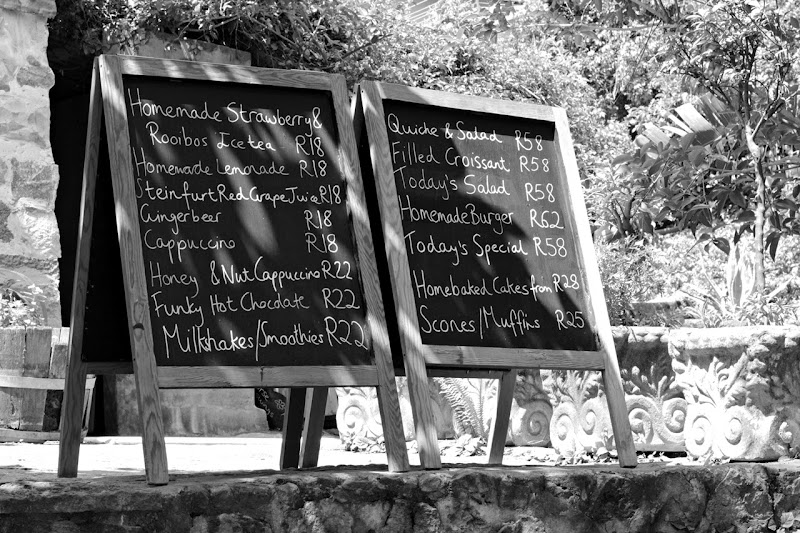 Homemade Strawberry &
Rooibos Ice tea R18
Homemade Lemonade R18
Steinfurt Red Grape Juice R18
Gingerbeer R18
Cappuccino R18
Honey & Nut Cappuccino R22
Funky Hot Choclate R22
Milkshakes/Smoothies R22
Quiche & Salad R58
Filled Croissant R58
Today's Salad R58
Homemade Burger R62
Today's Special R58
Homebaked Cakes from R28
Scones/Muffins R25